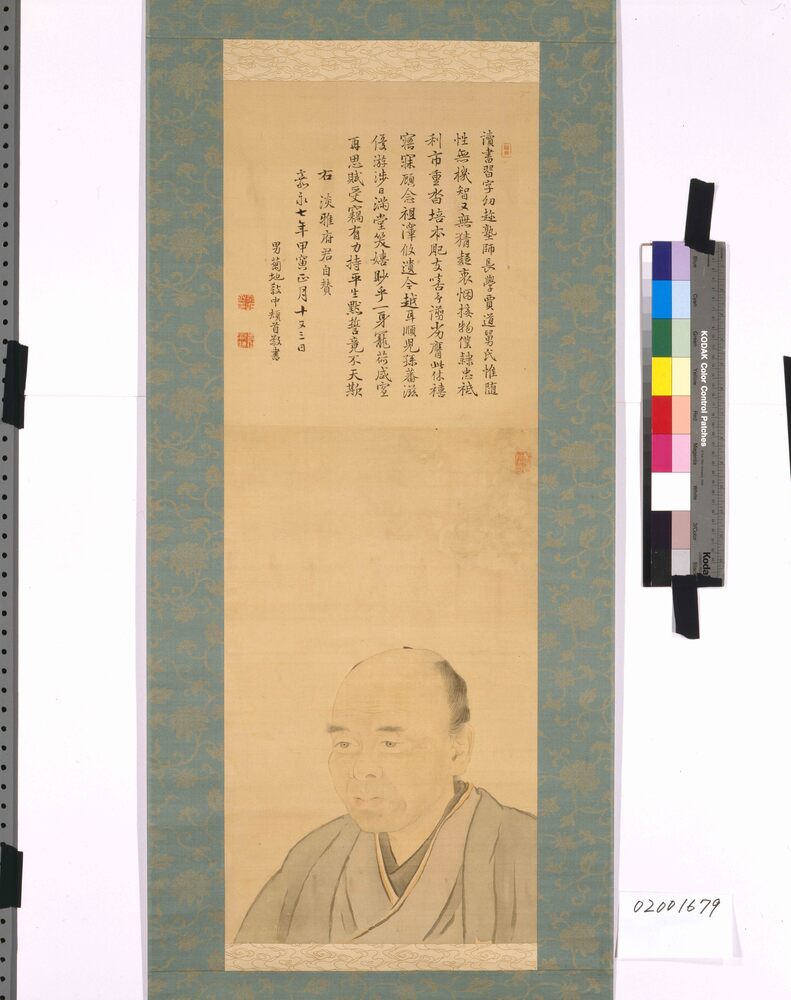 讀書習字幼趁塾師長學賈道舅氏惟隨
性無機智又無猜疑衷悃接物僕隸忠祗
利市重沓培本肥支嗟予謭劣膺此休禧
寤寐願念祖澤攸遺今越耳順児孫蕃滋
優游渉日滿堂笑嬉眇乎一身寵荷咸宜
再思賦受竊有力持平生黙誓竟不天欺
右 淡雅府君自賛
嘉永七年甲寅正月十又三日
男菊地敎中頓首敬書
KODAK Color Control Patches
Blue
Cyan
Green
Yellow
Red
Magenta
White
3/Color
Kodak
02001679